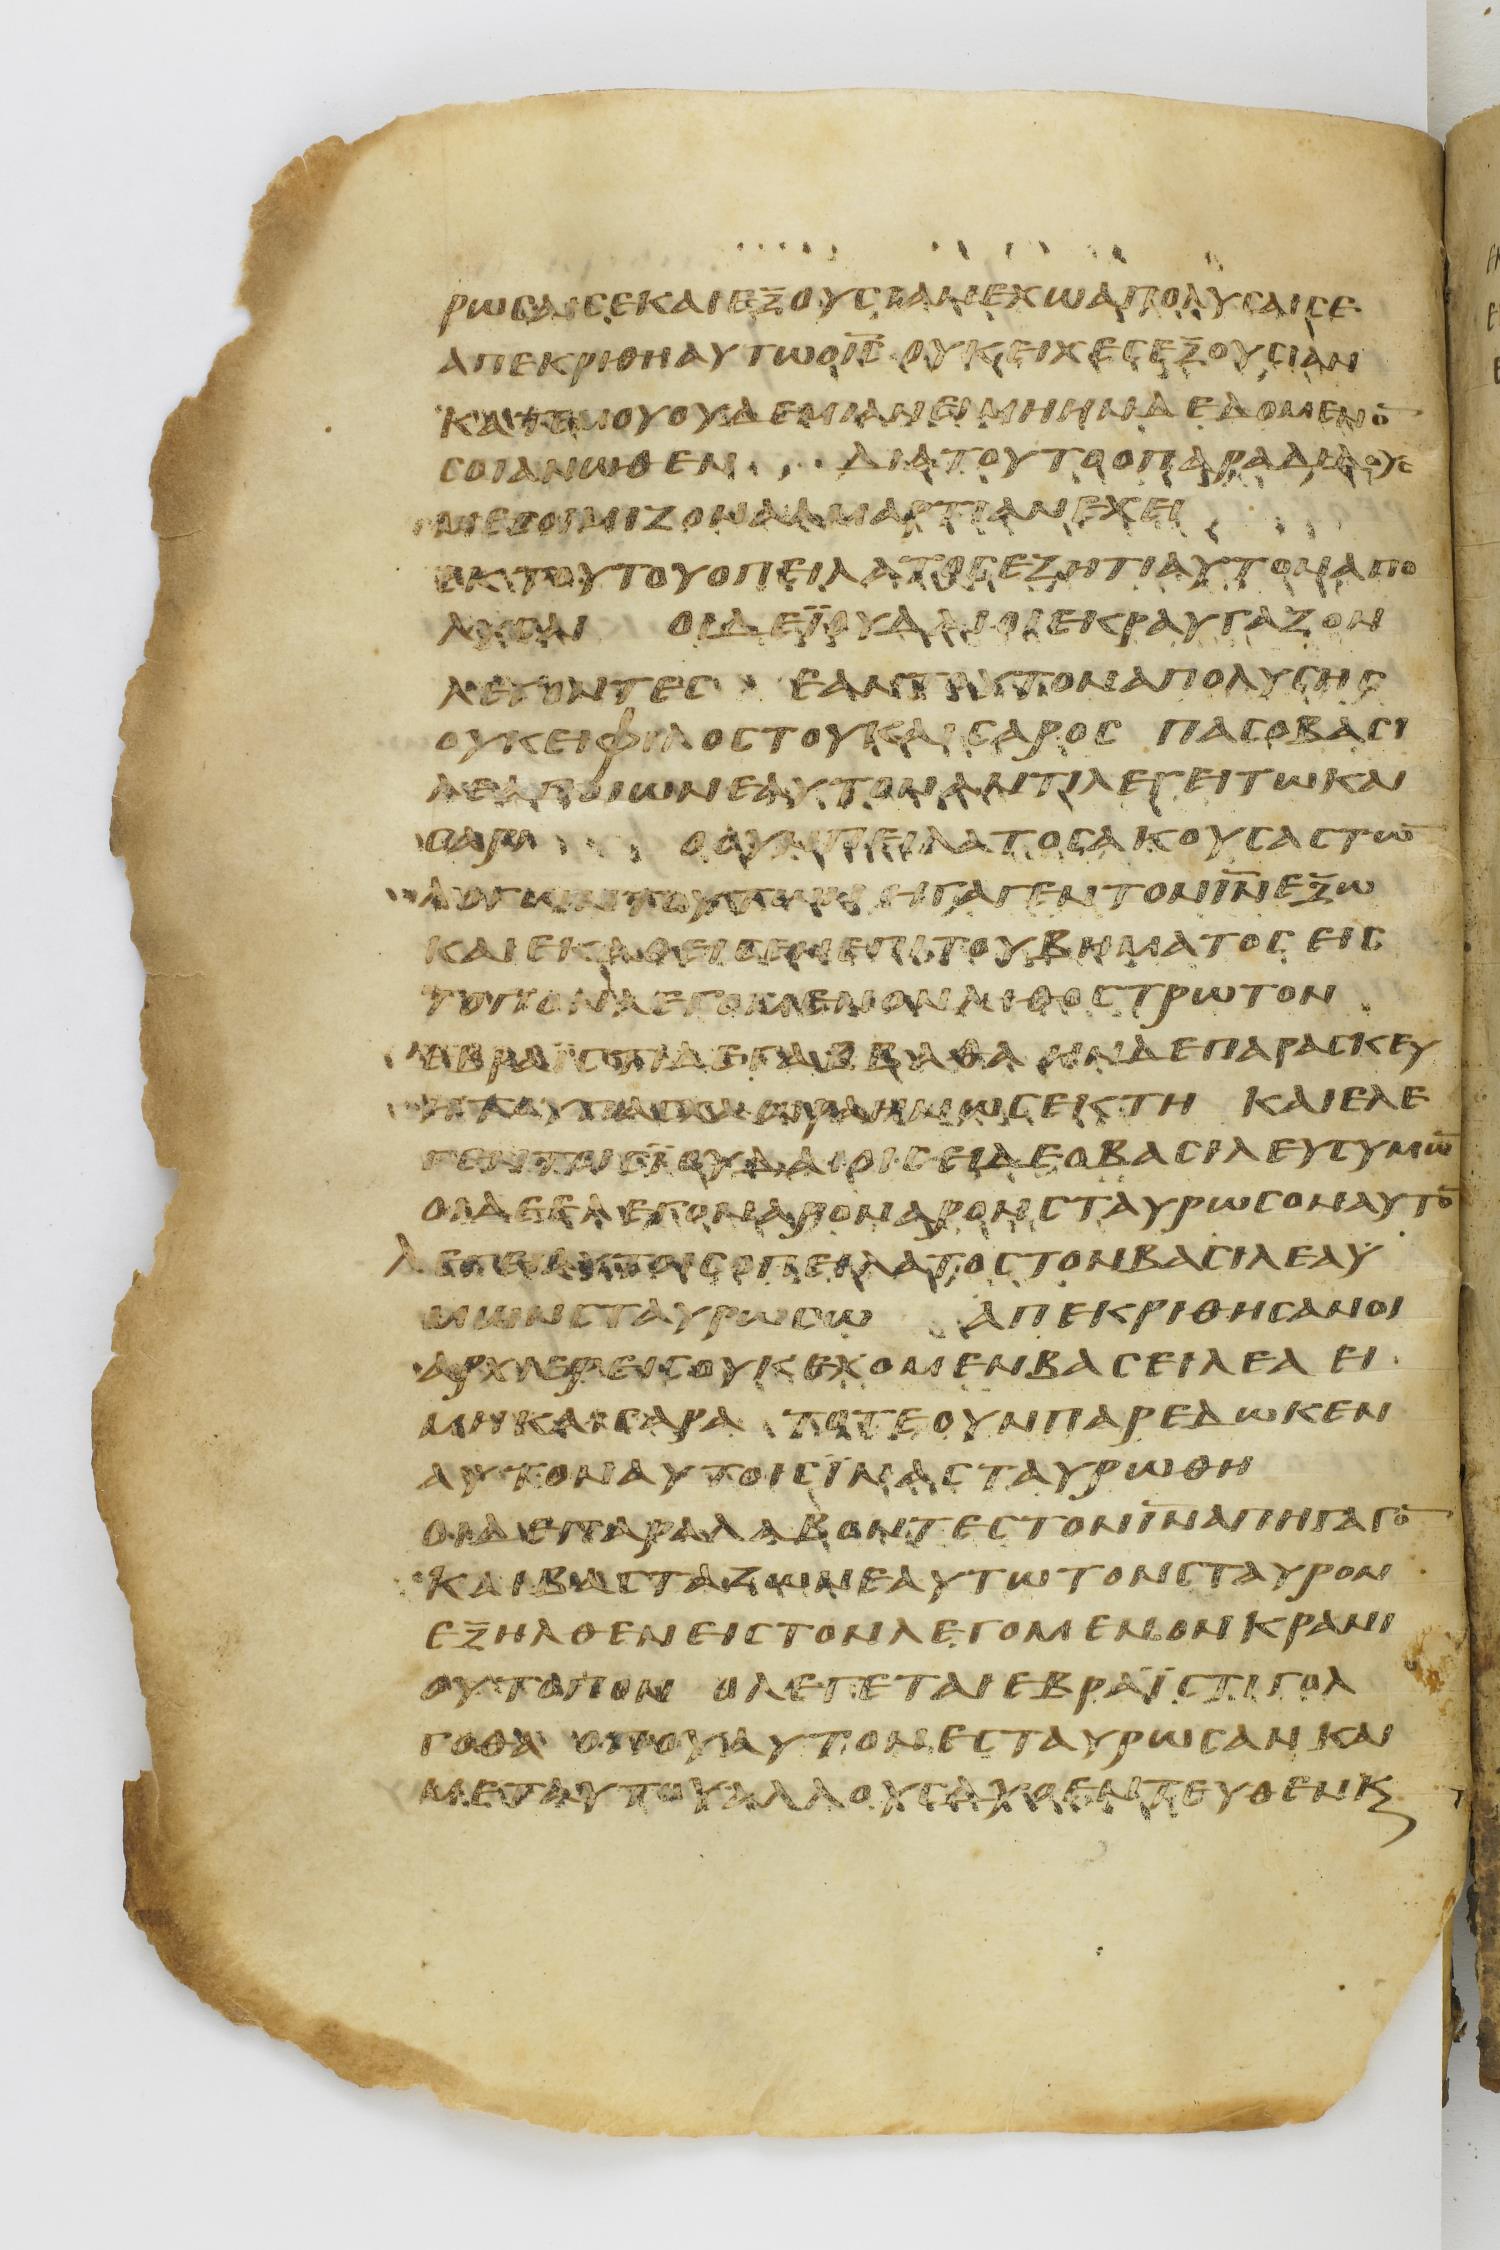 ρωσαισεκαιεξουσιανεχωαπολυσαισε
απεκριθηαυτωοις̅ ουκειχεσεξουσιαν
κατεμουουδεμιανειμηηνδεδομενο̅
σοιανωθεν διατουτοοπαραδιδουσ
μεσοιμιζοναμαρτιανεχει
εκτουτουοπειλατοσεζητιαυτοναπο
λυσαι οιδεϊουδαιοιεκραυγαζον
λεγοντεσ εαντουτοναπολυσησ
ουκειφιλοστουκαισαροσ πασοβασι
λεαποιωνεαυτοναντιλεγειτωκαι
σαρι ουνπειλατοσακουσαστω̅
λογωντουτων ηγαγεντονιν̅εξω
καιεκαθεισενεπιτουβηματοσεισ
τοπονλεγομενονλιθοστρωτον
εβραϊστιδεγαββαθα ηνδεπαρασκευ
ητουπασχα ωσεκτη καιελε
γεντοισϊουδαιοισειδεοβασιλευσυμω̅
οιδεελεγοναροναρονσταυρωσοναυτο̅
λεγειαυτοισοπειλατοστονβασιλεαϋ
μωνσταυρωσω απεκριθησανοι
αρχιερεισουκεχομενβασειλεαει
μηκαισαρα τοτεουνπαρεδωκεν
αυτοναυτοισϊνασταυρωθη
οιδεπαραλαβοντεστονιν̅απηγαγο̅
καιβασταζωνεαυτωτονσταυρον
εξηλθενειστονλεγομενονκρανι
ουτοπον ολεγεταιεβραϊστιγολ
γοθα οπουαυτονεσταυρωσανκαι
μεταυτουαλλουσδυοεντευθενκ